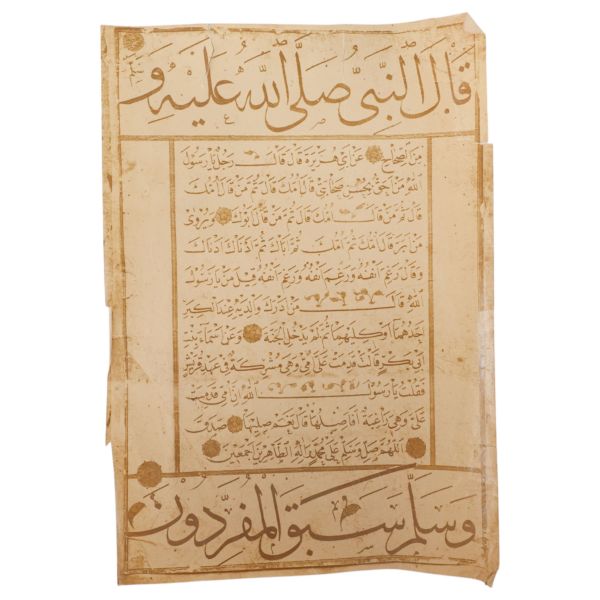 قَالَ النَّبِيُّ صَلَّى اللَّهُ عَلَيْهِ وَ
مِنَ الصِّحَاحِ عَنْ أَبِي هُرَيْرَةَ قَالَ قَالَ رَجُلٌ يَا رَسُولَ
اللَّهِ مَنْ أَحَقُّ بِحُسْنِ صَحَابَتِي قَالَ أُمُّكَ قَالَ ثُمَّ مَنْ قَالَ أُمُّكَ
قَالَ ثُمَّ مَنْ قَالَ أُمُّكَ قَالَ ثُمَّ مَنْ قَالَ أَبُوكَ وَيُرْوَى
مَنْ أَبَرُّ قَالَ أُمَّكَ ثُمَّ أُمَّكَ ثُمَّ أَبَاكَ ثُمَّ أَدْنَاكَ أَدْنَاكَ
وَقَالَ رَغِمَ أَنْفُهُ وَرَغِمَ أَنْفُهُ وَرَغِمَ أَنْفُهُ قِيلَ مَنْ يَا رَسُولَ
اللَّهِ قَالَ مَنْ أَدْرَكَ وَالِدَيْهِ عِنْدَ الْكِبَرِ
أَحَدَهُمَا أَوْ كِلَيْهِمَا ثُمَّ لَمْ يَدْخُلِ الْجَنَّةَ وَعَنْ أَسْمَاءَ بِنْتِ
أَبِي بَكْرٍ قَالَتْ قَدِمَتْ عَلَيَّ أُمِّي وَهِيَ مُشْرِكَةٌ فِي عَهْدِ قُرَيْشٍ
فَقُلْتُ يَا رَسُولَ اللَّهِ إِنَّ أُمِّي قَدِمَتْ
عَلَيَّ وَهِيَ رَاغِبَةٌ أَفَأَصِلُهَا قَالَ نَعَمْ صِلِيهَا صَدَقَ
اللَّهُمَّ صَلِّ وَسَلِّمْ عَلَى مُحَمَّدٍ وَآلِهِ الطَّاهِرِينَ أَجْمَعِينَ
وَسَلَّمَ سَبَقَ الْمُفَرِّدُونَ